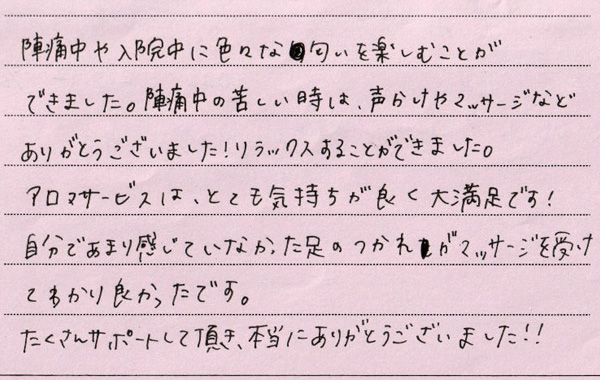 陣痛中や入院中に色々な匂いを楽しむことが
できました。陣痛中の苦しい時は、声かけやマッサージなど
ありがとうございました!リラックスすることができました。
アロマサービスは、とても気持ちが良く大満足です!
自分であまり感じていなかった足のつかれがマッサージを受け
てわかり良かったです。
たくさんサポートして頂き、本当にありがとうございました!!